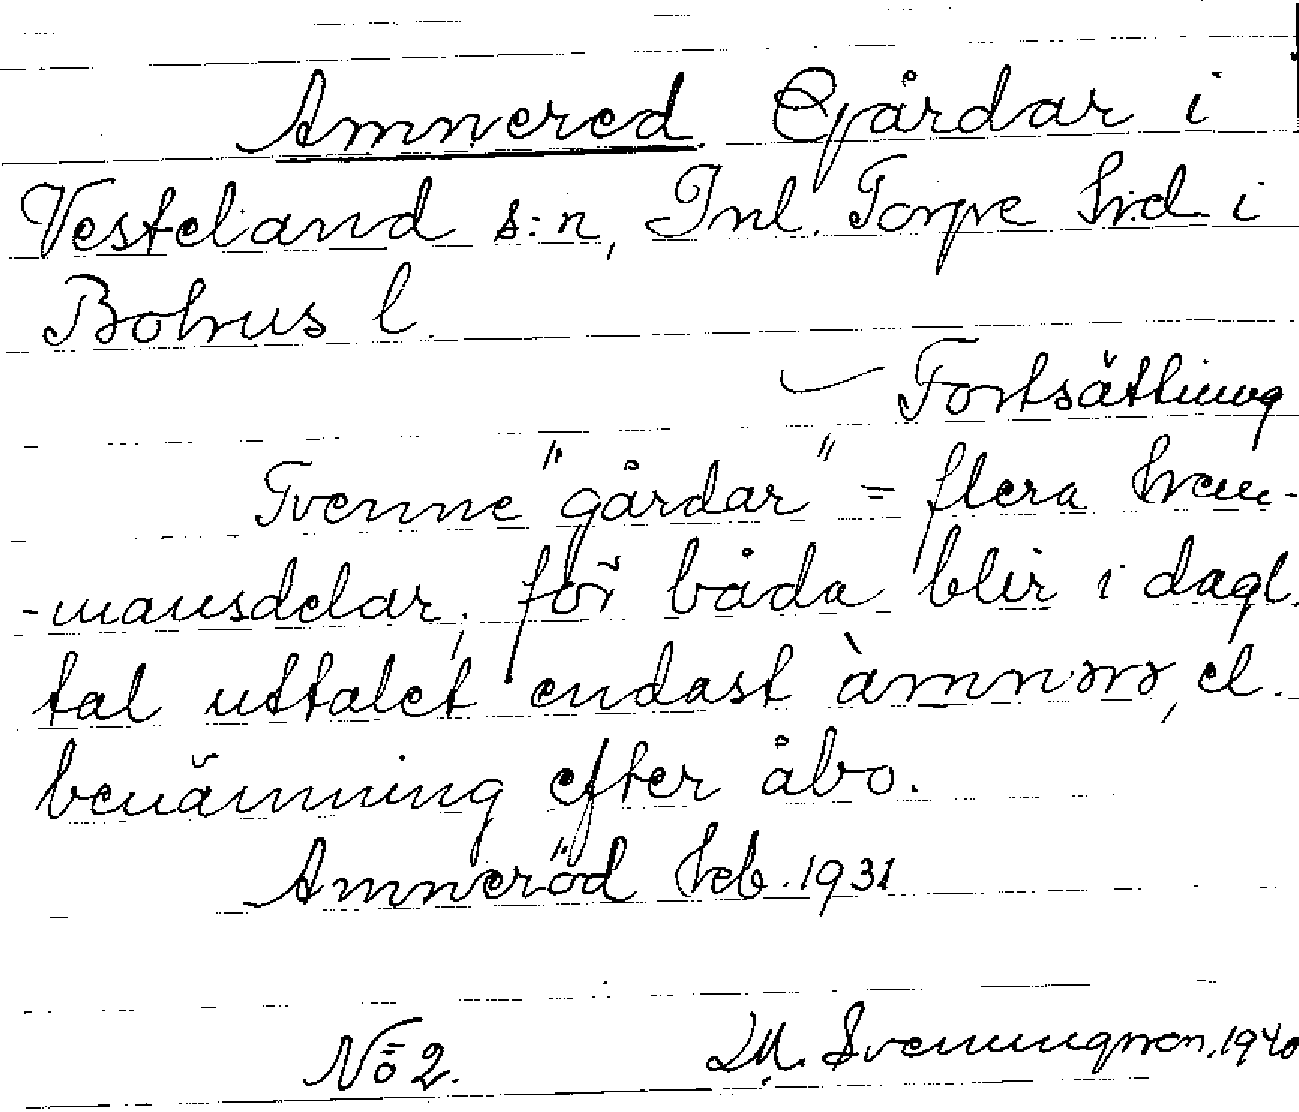 Amnered Gårdar i
Vesteland s:n, Inl. Torpe hrd. i
Bohus l.
Fortsättning
Tvenne "gårdar" = flera hem-
-mansdelar; för båda blir i dagl.
tal uttalet endast el.
benämning efter åbo.
Amneröd heb. 1931
No 2. Svenningson, 1940